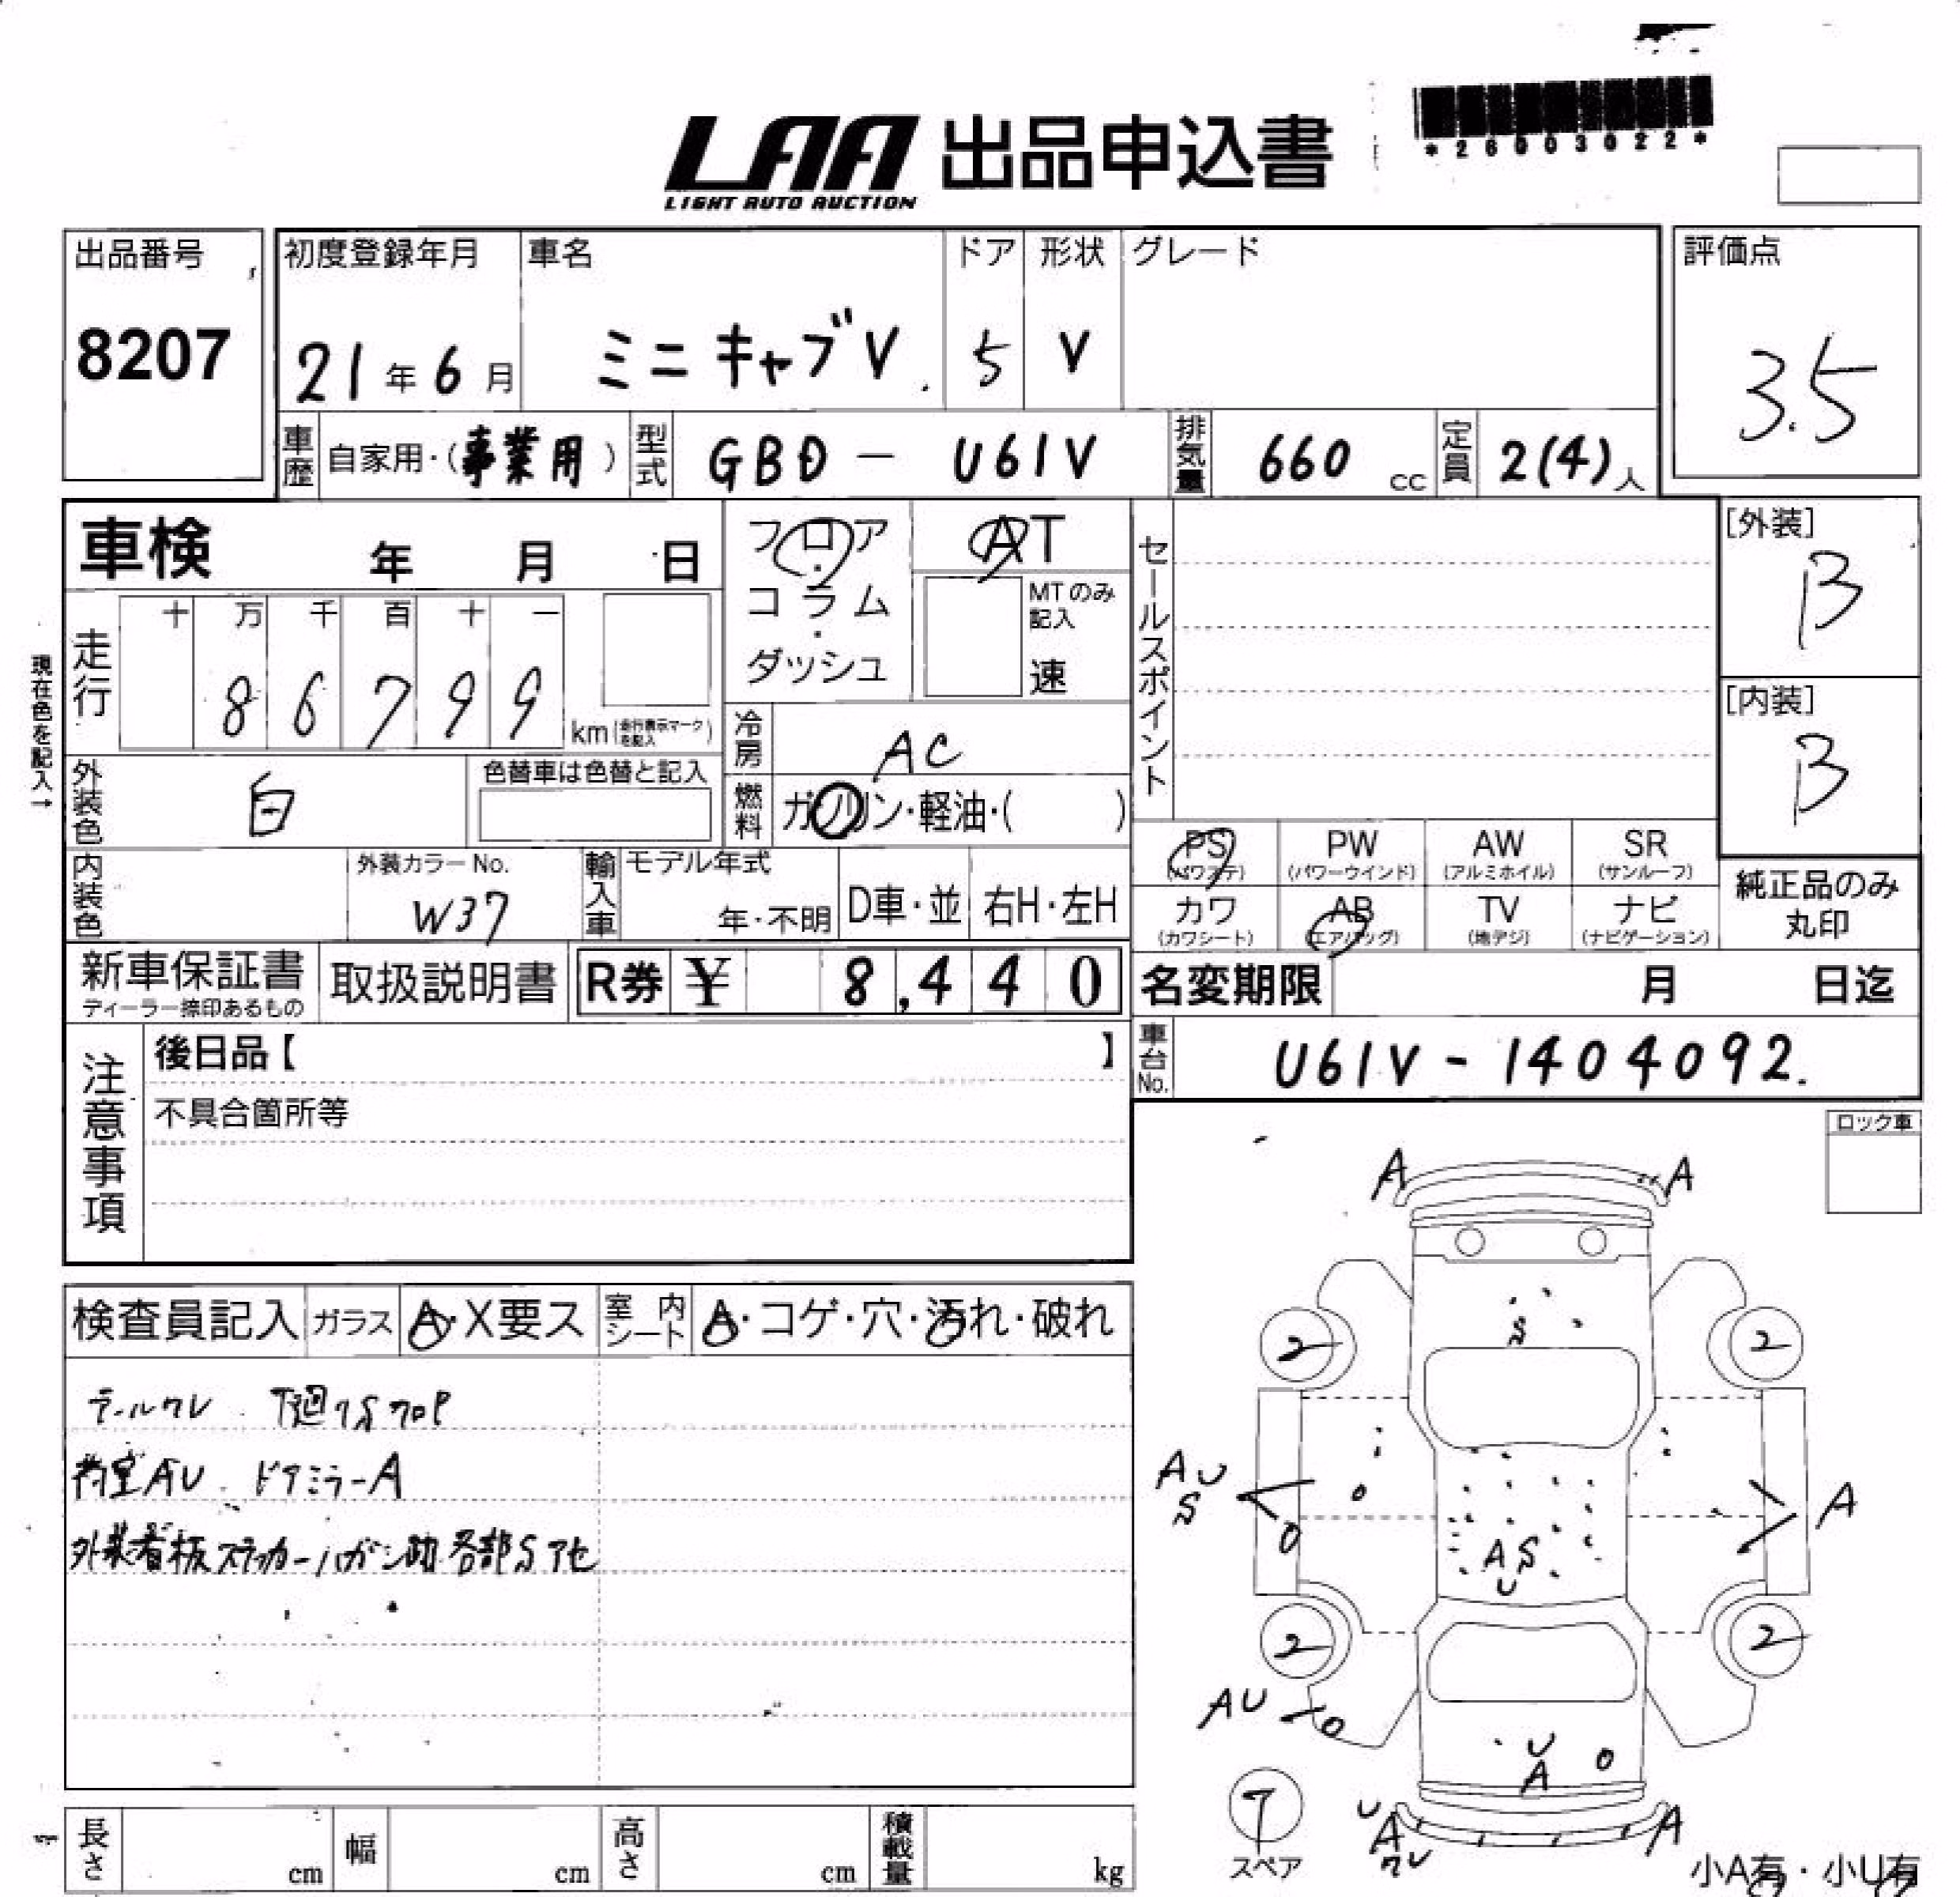 LAA 出品申込書
LIGHT AUTO AUCTION
*26003022*
出品番号
8207
初度登録年月
21年6月
車名
ミニキャブV
ドア
5
形状
V
グレード
評価点
3.5
車歴 自家用・(事業用)
型式 GBD-U61V
排気量 660cc
定員 2(4)人
車検 年 月 日
フロア・コラム・ダッシュ
AT
MTのみ記入
速
セールスポイント
[外装]
B
[内装]
B
現在色を記入→
走行 十 万 千 百 十 一
86799
km(走行表示マークを記入)
冷房 AC
外装色 白
色替車は色替と記入
燃料 ガソリン・軽油・( )
内装色
外装カラーNo.
W37
輸入車
モデル年式
年・不明
D車・並
右H・左H
PS
(パワステ)
PW
(パワーウインド)
AW
(アルミホイル)
SR
(サンルーフ)
カワ
(カワシート)
AB
(エアバッグ)
TV
(地デジ)
ナビ
(ナビゲーション)
純正品のみ丸印
新車保証書
ディーラー捺印あるもの
取扱説明書
R券 ¥ 8,440
名変期限 月 日迄
車台No. U61V-1404092.
注意事項
後日品【 】
不具合箇所等
ロック車
検査員記入 ガラス A・X要ス
室内シート A・コゲ・穴・汚れ・破れ
テールワレ 下廻サS
荷室AU ドアミラーA
外装看板ステッカーハガシ跡 各部Sアセ
A A
S
2 2
AU
S
A
AS
U
2 2
AU
U
A
U
A
ワレ
A
T
スペア
小A有・小U有
長さ cm
幅 cm
高さ cm
積載量 kg